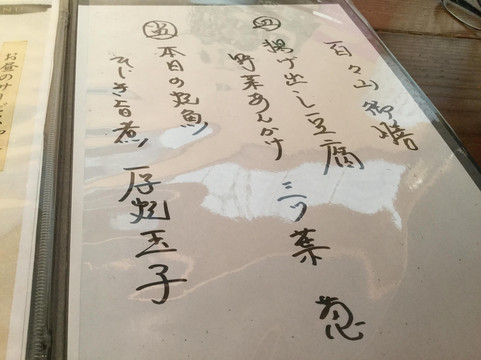 百々山御膳
四
揚げ出し豆腐
野菜あんかけ 三ツ葉 葱
五
本日の焼魚
ひじき旨煮 厚焼玉子
お昼のサービス